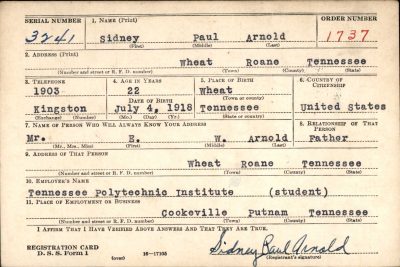 SERIAL NUMBER 1. NAME (Print) ORDER NUMBER
3241 Sidney Paul Arnold 1737
(First) (Middle) (Last)
2. ADDRESS (Print)
Wheat Roane Tennessee
(Number and street or R. F. D. number) (Town) (County) (State)
3. TELEPHONE 4. AGE IN YEARS 5. PLACE OF BIRTH 6. COUNTRY OF CITIZENSHIP
1903 22 Wheat
DATE OF BIRTH (Town or county)
Kingston July 4, 1918 Tennessee United States
(Exchange) (Number) (Mo.) (Day) (Yr.) (State or country)
7. NAME OF PERSON WHO WILL ALWAYS KNOW YOUR ADDRESS 8. RELATIONSHIP OF THAT PERSON
Mr. E. W. Arnold Father
(Mr., Mrs., Miss) (First) (Middle) (Last)
9. ADDRESS OF THAT PERSON
Wheat Roane Tennessee
(Number and street or R. F. D. number) (Town) (County) (State)
10. EMPLOYER'S NAME
Tennessee Polytechnic Institute (student)
11. PLACE OF EMPLOYMENT OR BUSINESS
Cookeville Putnam Tennessee
(Number and street or R. F. D. number) (Town) (County) (State)
I AFFIRM THAT I HAVE VERIFIED ABOVE ANSWERS AND THAT THEY ARE TRUE.
REGISTRATION CARD
D. S. S. Form 1 (over) 16—17105 Sidney Paul Arnold
(Registrant's signature)